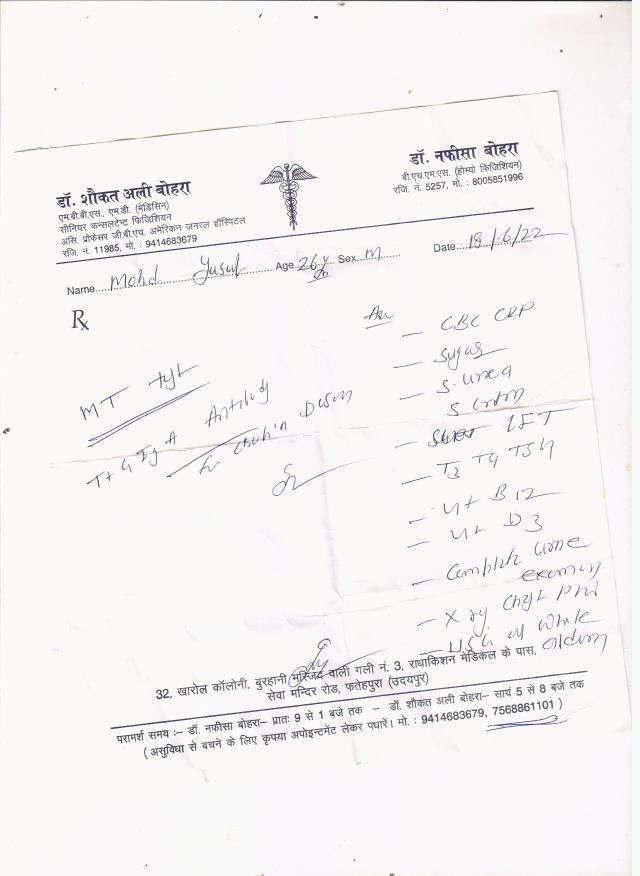 डॉ. शौकत अली बोहरा
एम.बी.बी.एस., एम.डी. (मेडिसिन)
सीनियर कन्सलटेन्ट फिजिशियन
असि. प्रोफेसर जी.बी.एच. अमेरिकन जनरल हॉस्पिटल
रजि. नं. 11985, मो. : 9414683679
डॉ. नफीसा बोहरा
बी.एच.एम.एस. (होम्यो फिजिशियन)
रजि. नं. 5257. मो. : 8005851996
Name....Mohd Yusuf....Age 26 y Sex M Date 18/6/22
Rx
MT
IgA Antibody
for
- CBC CRP
- Sugar
- S. urea
S
- LFT
- T3 T4 TSH
- Vit B12
- Vit D3
- Complete urine
- X ray Chest
- USG of whole
32, खारोल कॉलोनी, बुरहानी मस्जिद वाली गली नं. 3, राधाकिशन मेडिकल के पास,
सेवा मन्दिर रोड, फतेहपुरा (उदयपुर)
परामर्श समय :– डॉ. नफीसा बोहरा– प्रातः 9 से 1 बजे तक – डॉ. शौकत अली बोहरा– सायं 5 से 8 बजे तक
( असुविधा से बचने के लिए कृपया अपोइन्टमेंट लेकर पधारें। मो. : 9414683679, 7568861101 )